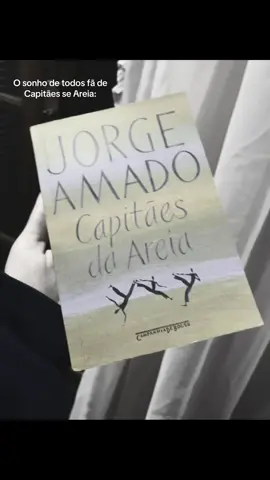 O sonho de todos fã de
Capitães se Areia:
JORGE
AMADO
Capitães
da Areia
COMPANHIA DE BOLSO